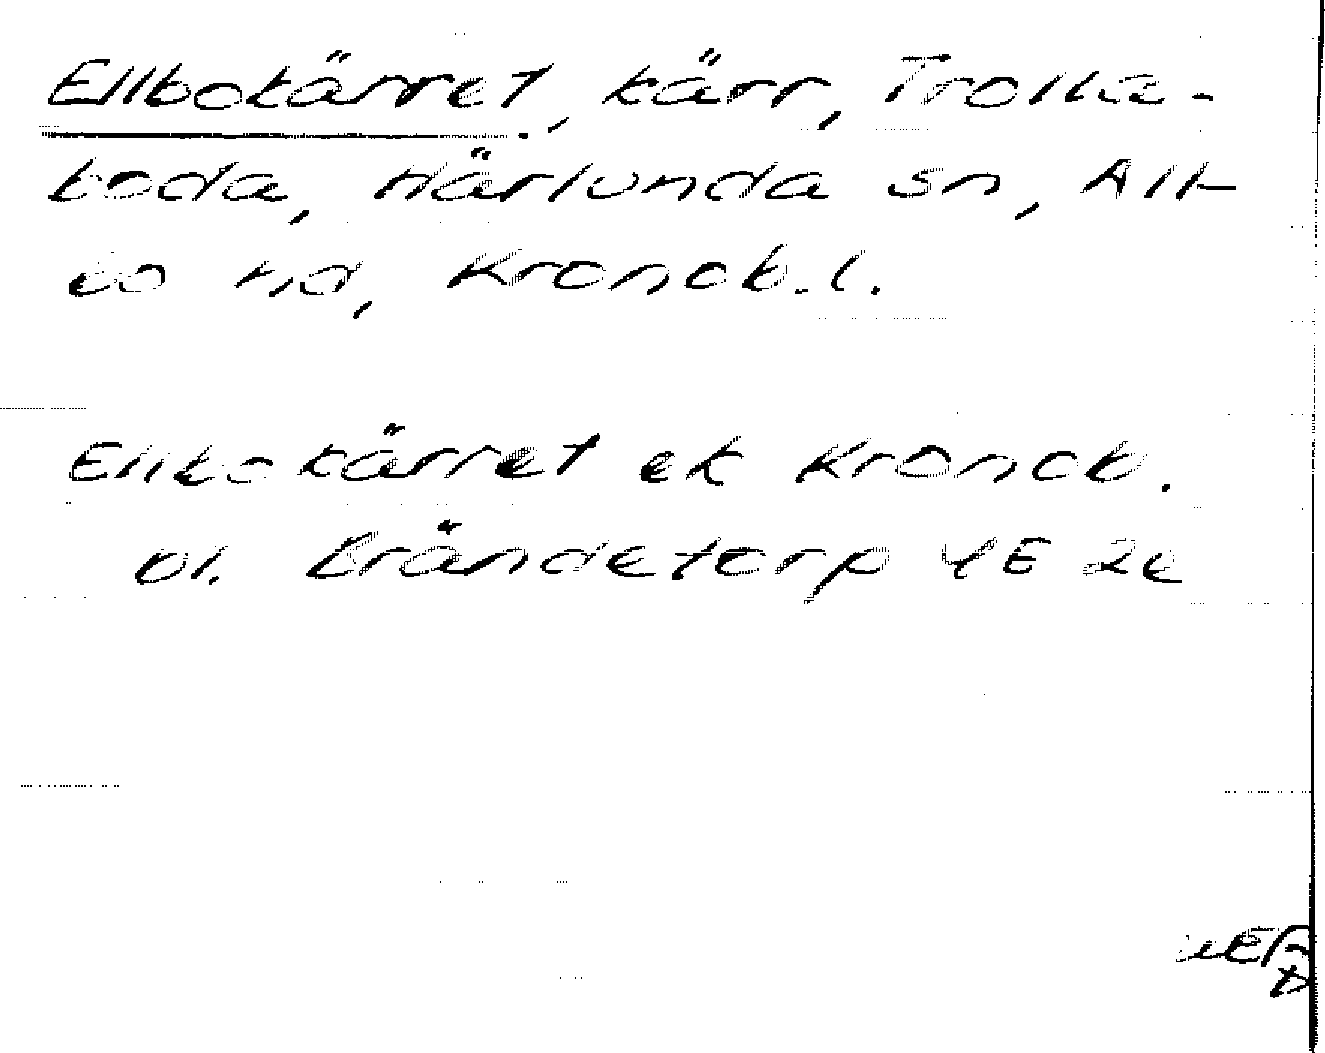 Ellbokärret, kärr, Trolla-
boda, Härlunda sn, All-
bo hd, Kronob. l.
Ellbokärret ek Kronob.
bl. Brändetorp 4E 2e